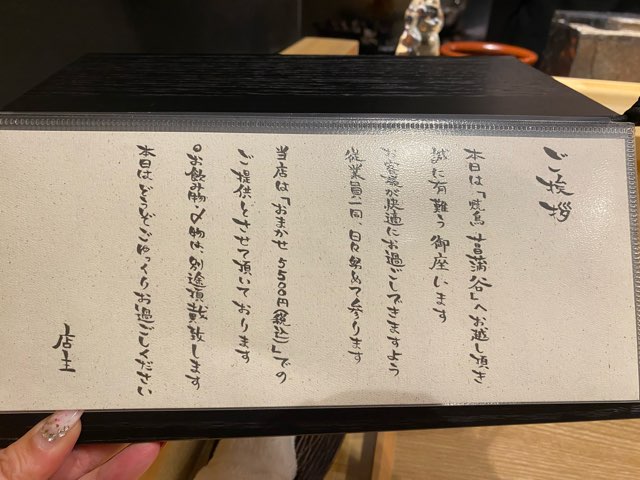 ご挨拶
本日は「焼鳥 菖蒲谷」へお越し頂き
誠に有難う御座います
お客様が快適にお過ごしできますよう
従業員一同、日々努めて参ります
当店は「おまかせ 5500円(税込)」での
ご提供とさせて頂いております
お飲み物〆物は、別途頂戴致します
本日はどうぞごゆっくりお過ごしください
店主